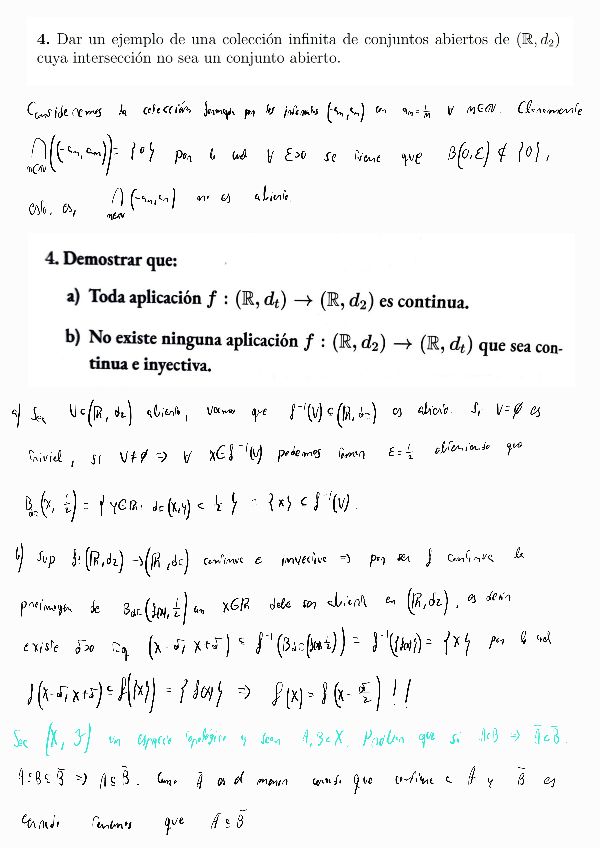 4. Dar un ejemplo de una colección infinita de conjuntos abiertos de (ℝ, d₂)
cuya intersección no sea un conjunto abierto.
Consideremos la colección formada por los intervalos (-aₙ, aₙ) con aₙ = 1/n ∀ n∈ℕ. Claramente
⋂ₙ∈ℕ ((-aₙ, aₙ)) = {0} por lo cual ∀ ε>0 se tiene que B(0,ε) ⊄ {0},
esto es, ⋂ₙ∈ℕ (-aₙ, aₙ) no es abierto
4. Demostrar que:
a) Toda aplicación f : (ℝ, dₜ) → (ℝ, d₂) es continua.
b) No existe ninguna aplicación f : (ℝ, d₂) → (ℝ, dₜ) que sea con-
tinua e inyectiva.
a) Sea U⊂(ℝ, d₂) abierto, veamos que f⁻¹(U) ⊂ (ℝ, dₜ) es abierto. Si U=∅ es
trivial, si U≠∅ ⇒ ∀ x∈f⁻¹(U) podemos tomar ε=1/2 obteniendo que
B(x, 1/2) = {y∈ℝ: dₜ(x,y) < 1/2} = {x} ⊂ f⁻¹(U).
b) Sup f: (ℝ, d₂) → (ℝ, dₜ) continua e inyectiva ⇒ por ser f continua la
preimagen de B(f(x), 1/2) con x∈ℝ debe ser abierta en (ℝ, d₂), es decir
existe δ>0 tq (x-δ, x+δ) ⊂ f⁻¹(B(f(x), 1/2)) = f⁻¹({f(x)}) = {x} por lo cual
f(x-δ, x+δ) ⊆ f({x}) = {f(x)} ⇒ f(x) = f(x-δ/2) !!
Sea (X, T) un espacio topológico y sean A, B⊂X. Probar que si A⊂B ⇒ A̅⊂B̅.
A⊆B⊆B̅ ⇒ A⊆B̅. Como A̅ es el menor cerrado que contiene a A y B̅ es
cerrado tenemos que A̅⊆B̅